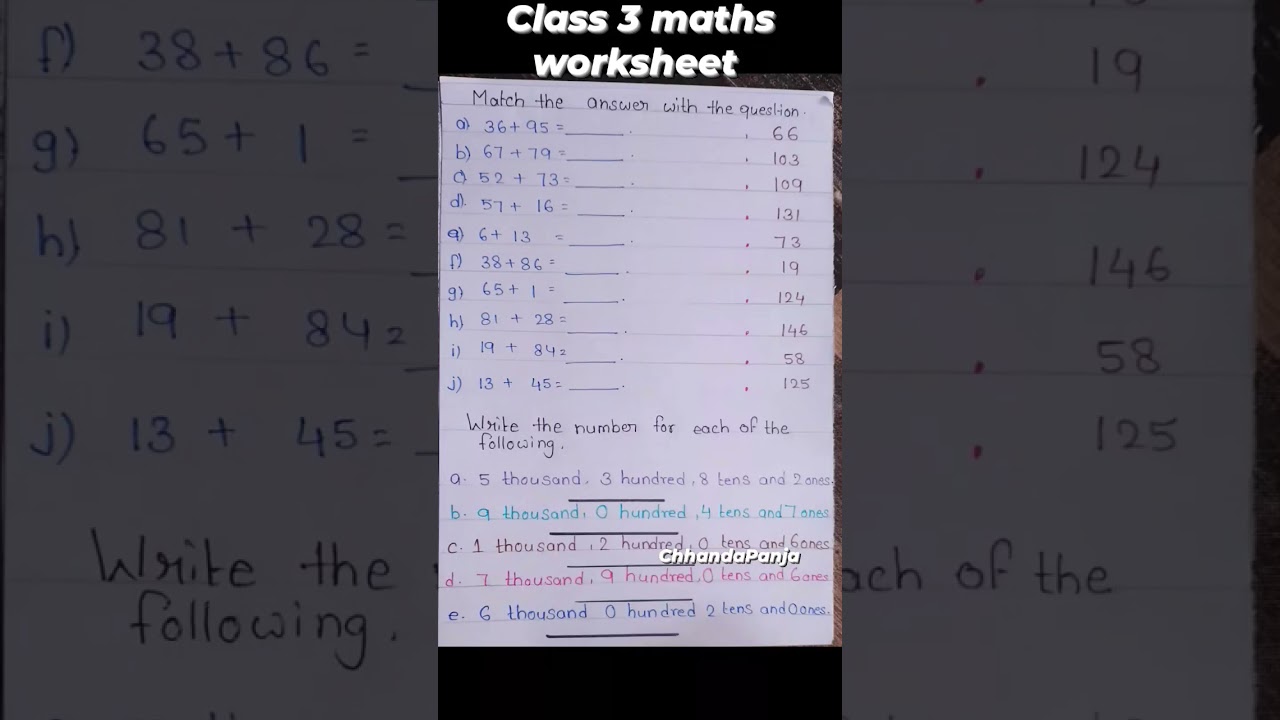 Class 3 maths
worksheet
Match the answer with the question.
a) 36+95=______ . . 66
b) 67+79=______ . . 103
c) 52 + 73=______ . . 109
d). 57+ 16=______ . . 131
e) 6+ 13 =______ . . 73
f) 38+86=______ . . 19
g) 65+ 1 =______ . . 124
h) 81 + 28=______ . . 146
i) 19 + 84=______ . . 58
j) 13 + 45=______ . . 125
Write the number for each of the
following.
a. 5 thousand, 3 hundred, 8 tens and 2 ones.
b. 9 thousand, 0 hundred, 4 tens and 7 ones
c. 1 thousand, 2 hundred, 0 tens and 6 ones
ChhandaPanja
d. 7 thousand, 9 hundred, 0 tens and 6 ones
e. 6 thousand 0 hundred 2 tens and 0 ones.
f) 38+86= . 19
g) 65+ 1 = . 124
h) 81 + 28= . 146
i) 19 + 84= . 58
j) 13 + 45= . 125
Write the ach of the
following.